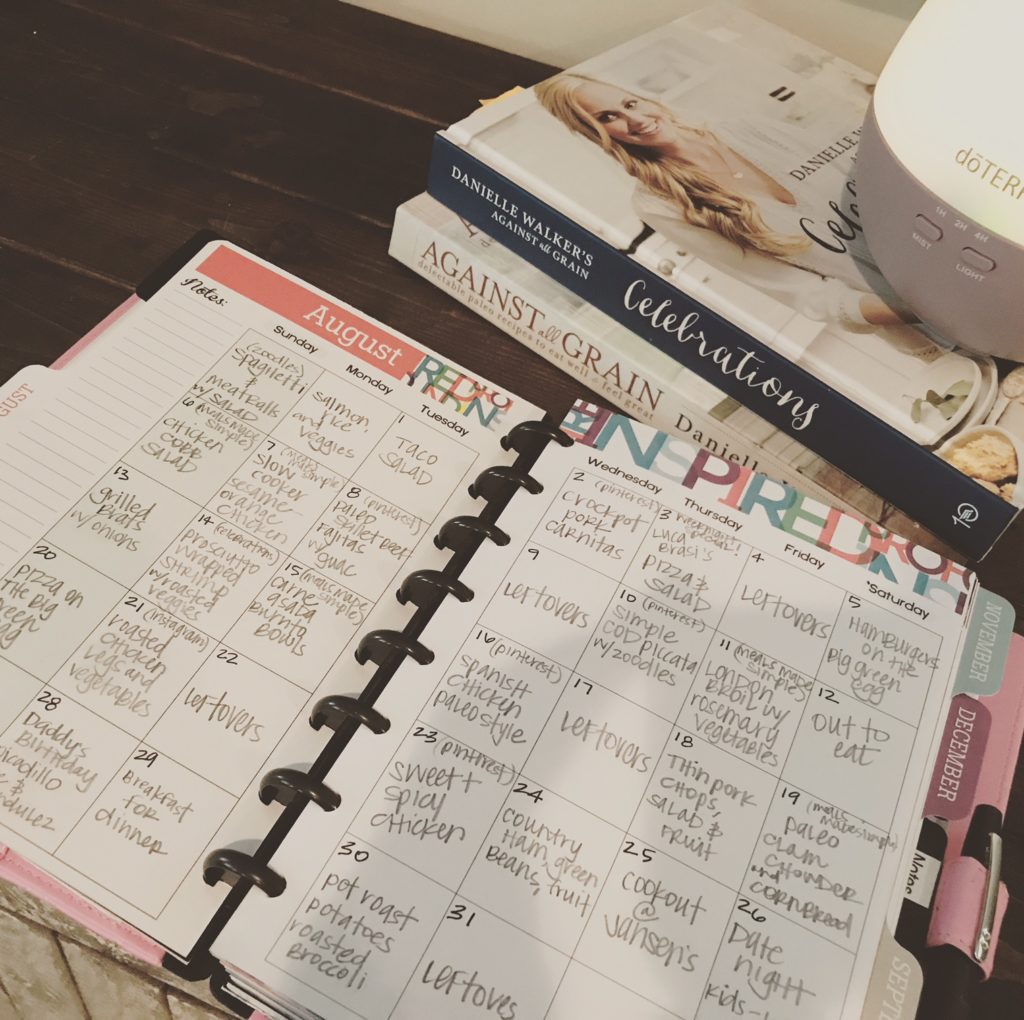 DANIELLE WALKER'S
AGAINST all GRAIN
Celebrations
AGAINST all GRAIN
delectable paleo recipes to eat well & feel great
dōTERR
1H 2H 4H
MIST
LIGHT
Notes:
August
INSPIRED
Sunday
Monday
Tuesday
(zoodles)
spaghetti
&
meatballs
w/ salad
salmon,
rice &
veggies
1
Taco
Salad
6 (meals made
simple)
chicken
cobb
salad
7
slow
cooker
sesame-
orange
chicken
8 (pinterest)
paleo
skillet beef
fajitas
w/ guac
13
grilled
brats
w/ onions
14 (celebrations)
proscutto
wrapped
shrimp
w/ roasted
veggies
15 (meals made
simple)
carne
asata
burrito
bowls
20
pizza on
the big
green
egg
21 (instagram)
roasted
chicken
legs and
vegetables
22
leftovers
28
Daddy's
Birthday
picadillo
&
29
Breakfast
for
dinner
Wednesday
Thursday
Friday
Saturday
2 (pinterest)
crockpot
pork
carnitas
3
Luca
Brasi's
pizza &
salad
4
Leftovers
5
Hamburgers
on the
big green
egg
9
leftovers
10 (pinterest)
simple
cod piccata
w/ zoodles
11 (meals made
simple)
London
Broil w/
rosemary
vegetables
12
out to
eat
16 (pinterest)
spanish
chicken
paleo style
17
leftovers
18
Thin pork
chops,
salad &
fruit
19 (meals
made simple)
paleo
clam
chowder
cornbread
23 (pinterest)
sweet +
spicy
chicken
24
country
Ham, green
Beans, fruit
25
cookout
@
Jansen's
26
Date
night
kids-
30
pot roast
potatoes
roasted
Broccoli
31
Leftoves
NOVEMBER
DECEMBER
Notes
SEPT